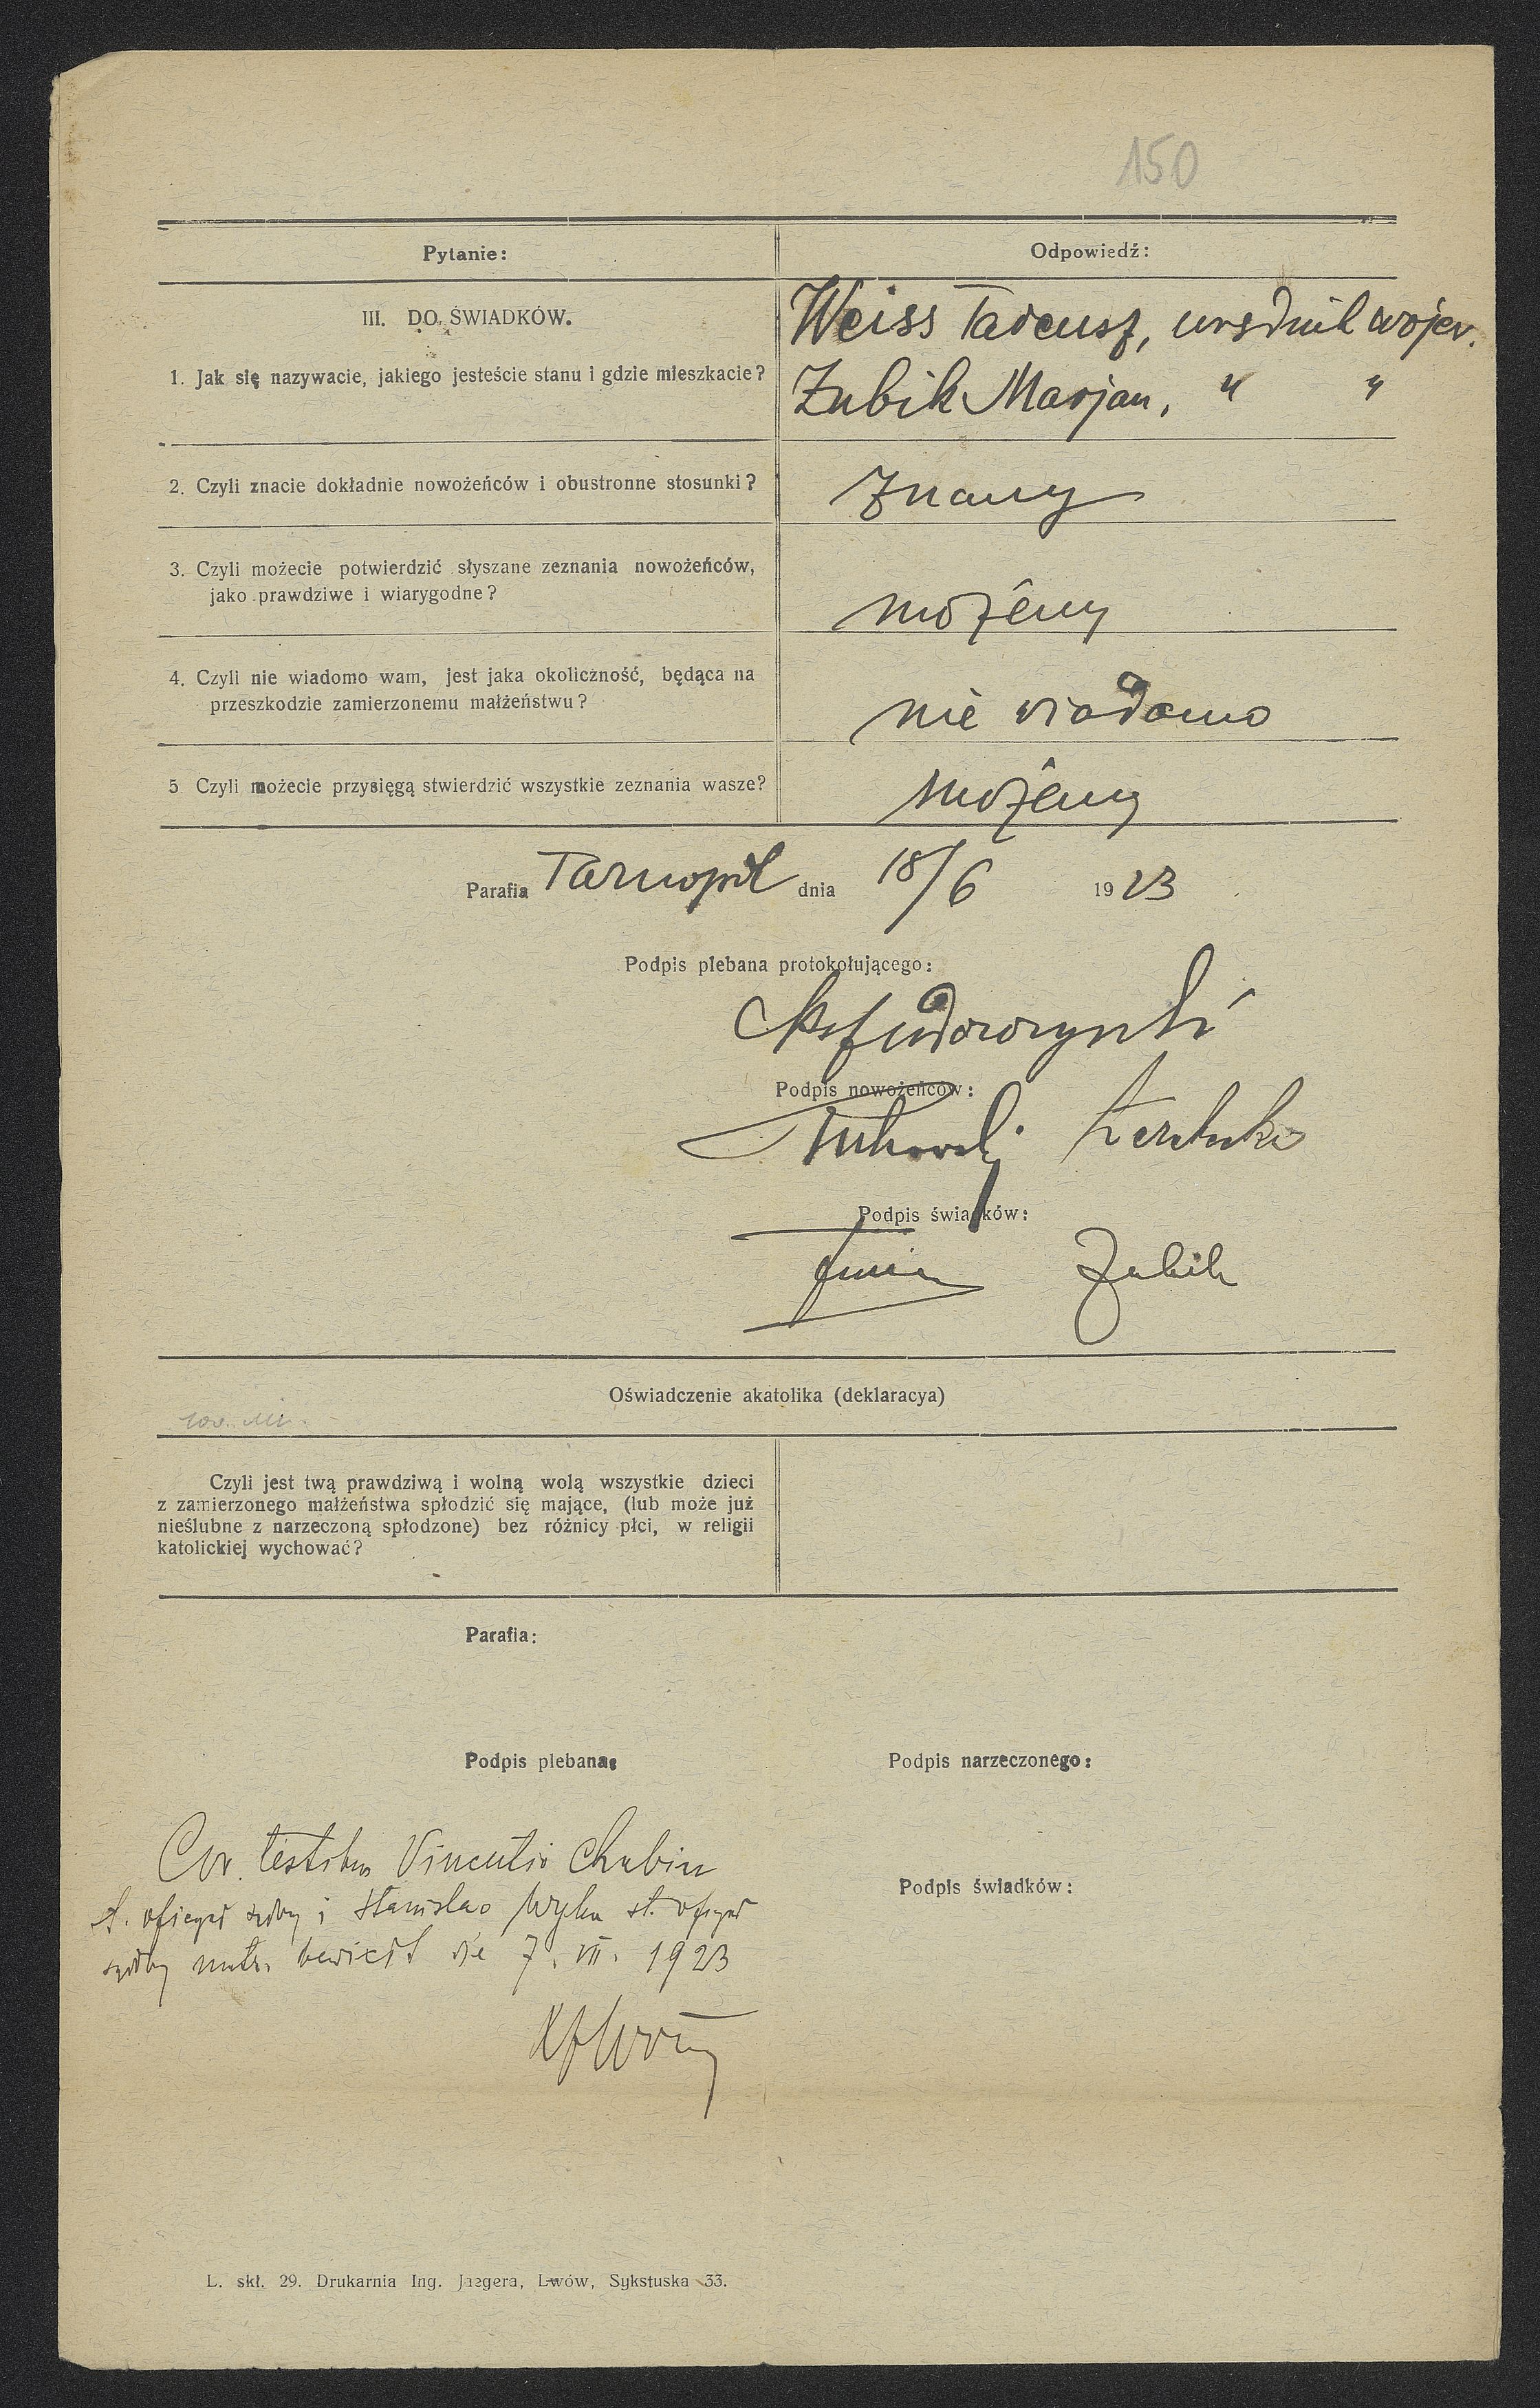 150
Pytanie:
Odpowiedź:
III. DO ŚWIADKÓW.
1. Jak się nazywacie, jakiego jesteście stanu i gdzie mieszkacie?
Weiss Tadeusz, urzędnik wojew.
Zubik Marjan, " "
2. Czyli znacie dokładnie nowożeńców i obustronne stosunki?
Znamy
3. Czyli możecie potwierdzić słyszane zeznania nowożeńców,
jako prawdziwe i wiarygodne?
możemy
4. Czyli nie wiadomo wam, jest jaka okoliczność, będąca na
przeszkodzie zamierzonemu małżeństwu?
nie wiadomo
5 Czyli możecie przysięgą stwierdzić wszystkie zeznania wasze?
możemy
Parafia Tarnopol dnia 18/6 1923
Podpis plebana protokołującego:
Podpis nowożeńców:
Podpis świadków:
Zubik
Oświadczenie akatolika (deklaracya)
Czyli jest twą prawdziwą i wolną wolą wszystkie dzieci
z zamierzonego małżeństwa spłodzić się mające, (lub może już
nieślubne z narzeczoną spłodzone) bez różnicy płci, w religii
katolickiej wychować?
Parafia:
Podpis plebana:
Podpis narzeczonego:
Cor. testibus Vincentio Chubin
Podpis świadków:
st. oficyał i Stanislao st. oficyał
7. VII. 1923
L. skł. 29. Drukarnia Ing. Jaegera, Lwów, Sykstuska 33.